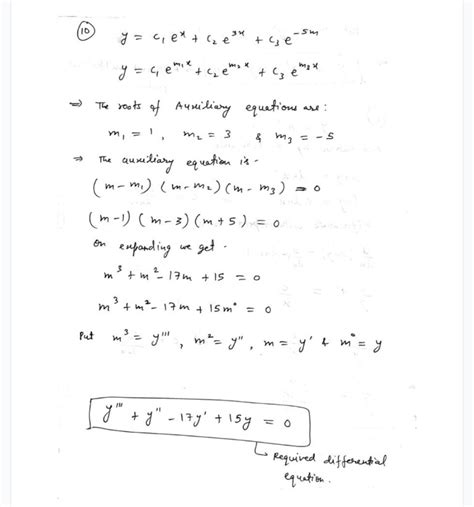 (10) y = c₁ e^x + c₂ e^3x + c₃ e^-5m
y = c₁ e^m₁x + c₂ e^m₂x + c₃ e^m₃x
⇒ The roots of Auxiliary equations are:
m₁ = 1, m₂ = 3 & m₃ = -5
⇒ The auxiliary equation is -
(m-m₁) (m-m₂) (m-m₃) = 0
(m-1) (m-3) (m+5) = 0
On expanding we get -
m³ + m² - 17m + 15 = 0
m³ + m² - 17m + 15m° = 0
Put m³ = y''', m² = y'', m = y' & m° = y
y''' + y'' - 17y' + 15y = 0
Required differential
equation.